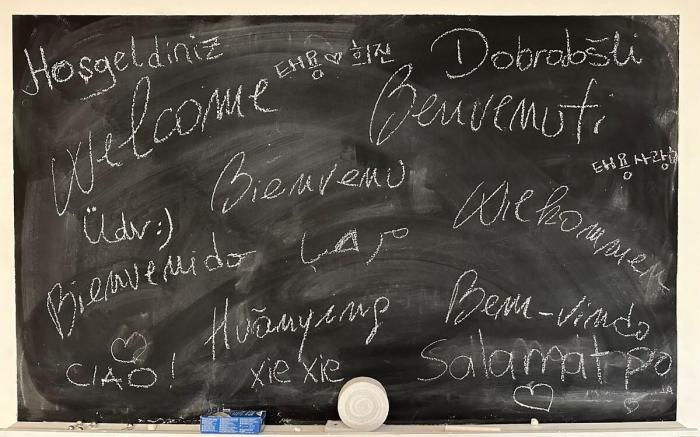 Hoşgeldiniz
태용♡희진
Dobrodošli
Welcome
Benvenuti
태용사랑해
Bienvenu
Wilkommen
Üdv:)
مرحبا
Bienvenido
Huānyíng
Bem-vindo
CIAO!
xie xie
Salamat po